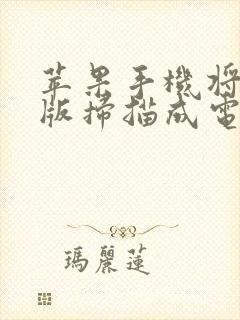 苹果手機將
版掃描成電
瑪麗蓮